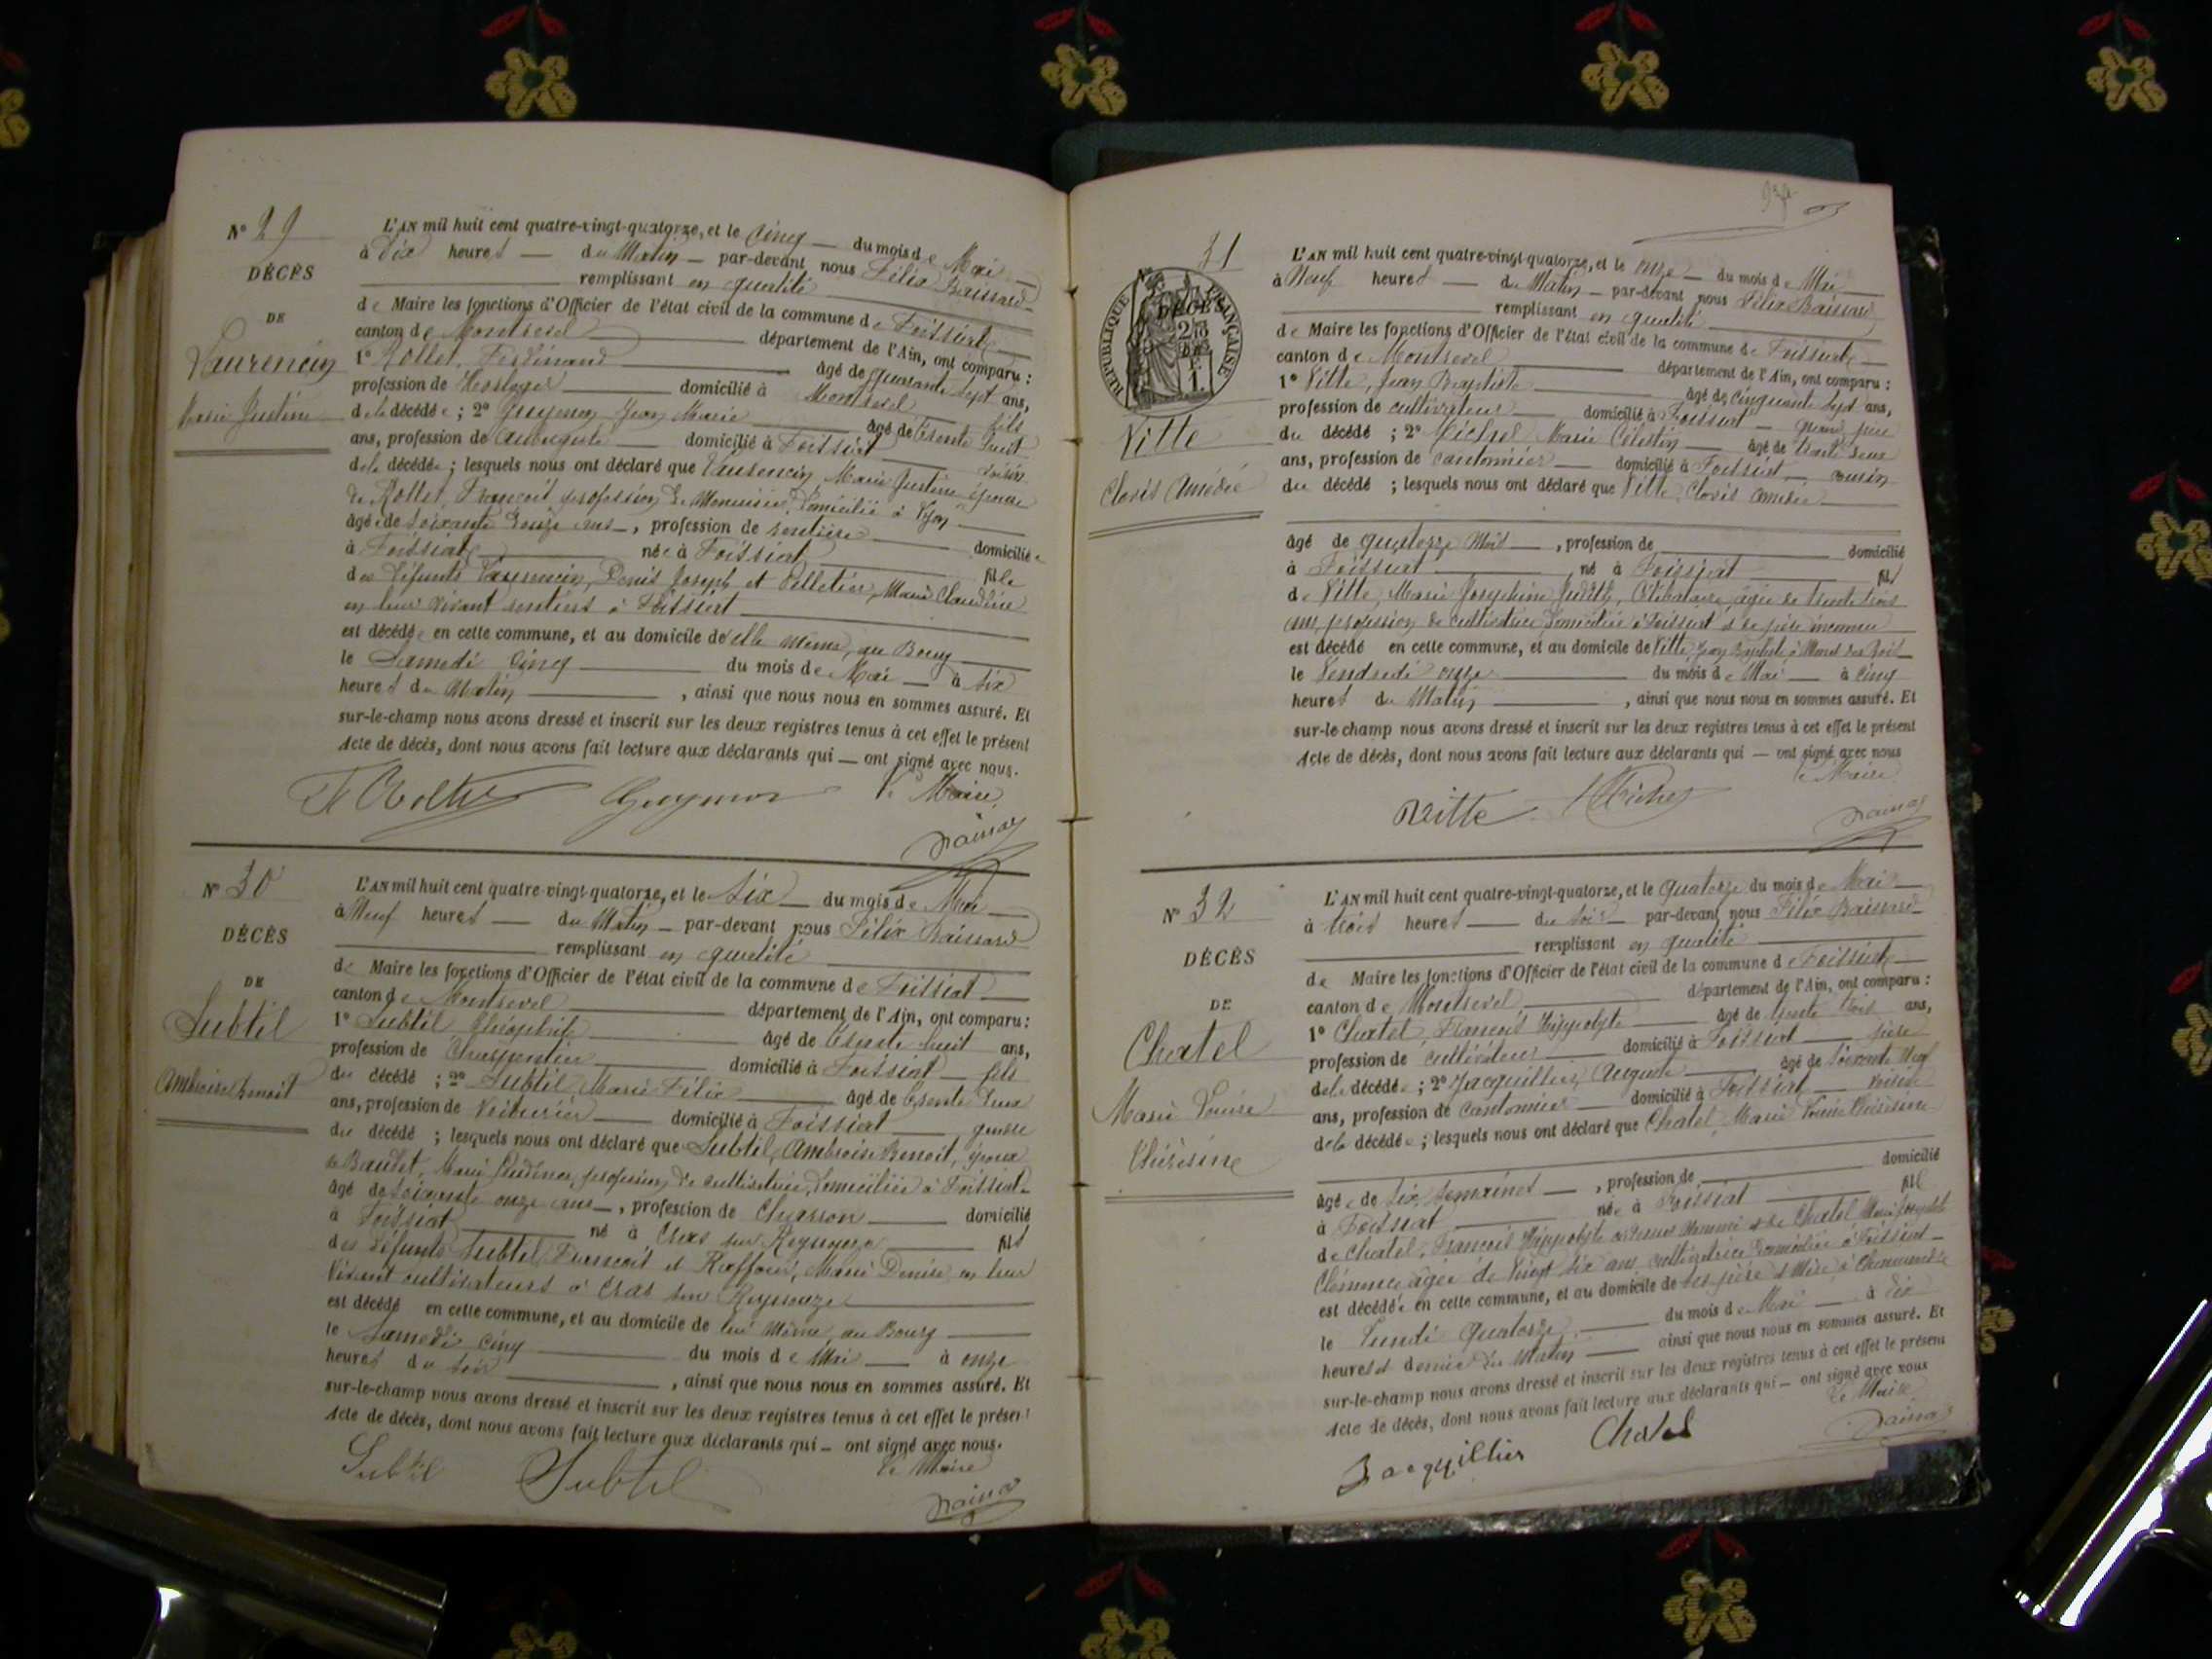 N° 29
DÉCÈS
DE
Laurencin
Marie Justine
L'AN mil huit cent quatre-vingt-quatorze, et le cinq du mois de Mai
à dix heures du Matin par-devant nous Félix
remplissant en qualité
de Maire les fonctions d'Officier de l'état civil de la commune de Foissiat
canton de Montrevel département de l'Ain, ont comparu :
1° Rollet, Ferdinand âgé de quarante sept ans,
profession de Horloger domicilié à Montrevel fils
de la décédée ; 2° Guymon Jean Marie âgé de trente huit
ans, profession de aubergiste domicilié à Foissiat voisin
de la décédée ; lesquels nous ont déclaré que Laurencin, Marie Justine épouse
de Rollet, François profession de Menuisier, domicilié à Lyon
âgée de soixante douze ans, profession de rentière domiciliée
à Foissiat née à Foissiat fille
des défunts Laurencin, Denis Joseph et Pelletier, Marie Claudine
en leur vivant rentiers à Foissiat
est décédée en cette commune, et au domicile de elle même, au Bourg
le Samedi cinq du mois de Mai à six
heures du Matin , ainsi que nous nous en sommes assuré. Et
sur-le-champ nous avons dressé et inscrit sur les deux registres tenus à cet effet le présent
Acte de décès, dont nous avons fait lecture aux déclarants qui — ont signé avec nous.
Guymon Le Maire
N° 30
DÉCÈS
DE
Subtil
Ambroise Benoit
L'AN mil huit cent quatre-vingt-quatorze, et le six du mois de Mai
à Neuf heures du Matin par-devant nous Félix
remplissant en qualité
de Maire les fonctions d'Officier de l'état civil de la commune de Foissiat
canton de Montrevel département de l'Ain, ont comparu :
1° Subtil âgé de trente huit ans,
profession de Charpentier domicilié à Foissiat fils
du décédé ; 2° Subtil Marie Félix âgé de trente deux
ans, profession de Voiturier domicilié à Foissiat
du décédé ; lesquels nous ont déclaré que Subtil, Ambroise Benoit, époux
de Baudet, Marie profession de cultivatrice, domiciliée à Foissiat
âgé de soixante onze ans, profession de Charron domicilié
à Foissiat né à Cras sur Reyssouze fils
des défunts Subtil, François et Marie Denise en leur
vivant cultivateurs à Cras sur Reyssouze
est décédé en cette commune, et au domicile de lui même, au Bourg
le Samedi cinq du mois de Mai à onze
heures du soir , ainsi que nous nous en sommes assuré. Et
sur-le-champ nous avons dressé et inscrit sur les deux registres tenus à cet effet le présent
Acte de décès, dont nous avons fait lecture aux déclarants qui — ont signé avec nous.
Subtil Subtil Le Maire
31
RÉPUBLIQUE FRANÇAISE
DÉCÈS
Vitte
Clovis Amédée
L'AN mil huit cent quatre-vingt-quatorze, et le onze du mois de Mai
à Neuf heures du Matin par-devant nous Félix
remplissant en qualité
de Maire les fonctions d'Officier de l'état civil de la commune de Foissiat
canton de Montrevel département de l'Ain, ont comparu :
1° Vitte, Jean Baptiste âgé de cinquante sept ans,
profession de cultivateur domicilié à Foissiat grand père
du décédé ; 2° Marie Célestin âgé de trente deux
ans, profession de cantonnier domicilié à Foissiat cousin
du décédé ; lesquels nous ont déclaré que Vitte, Clovis Amédée
âgé de quatorze mois , profession de domicilié
à Foissiat né à Foissiat fils
de Vitte, Marie Joséphine Judith, Célibataire, âgée de trente trois
ans, profession de cultivatrice, domiciliée à Foissiat et de père inconnu
est décédé en cette commune, et au domicile de Vitte Jean Baptiste
le Vendredi onze du mois de Mai à cinq
heures du Matin , ainsi que nous nous en sommes assuré. Et
sur-le-champ nous avons dressé et inscrit sur les deux registres tenus à cet effet le présent
Acte de décès, dont nous avons fait lecture aux déclarants qui — ont signé avec nous
Le Maire
Vitte
N° 32
DÉCÈS
DE
Chatel
Marie Louise
Thérésine
L'AN mil huit cent quatre-vingt-quatorze, et le quatorze du mois de Mai
à trois heures du soir par-devant nous Félix
remplissant en qualité
de Maire les fonctions d'Officier de l'état civil de la commune de Foissiat
canton de Montrevel département de l'Ain, ont comparu :
1° Chatel, François Hippolyte âgé de trente trois ans,
profession de cultivateur domicilié à Foissiat père
de la décédée ; 2° Jacquillier, Auguste âgé de soixante neuf
ans, profession de cantonnier domicilié à Foissiat voisin
de la décédée ; lesquels nous ont déclaré que Chatel, Marie Louise Thérésine
âgée de six semaines , profession de domicilié
à Foissiat née à Foissiat fille
de Chatel, François Hippolyte et de Chatel Marie
Clémence, âgée de vingt six ans, cultivatrice domiciliée à Foissiat
est décédée en cette commune, et au domicile de ses père et Mère à
le Lundi quatorze du mois de Mai à dix
heures et demie du Matin ainsi que nous nous en sommes assuré. Et
sur-le-champ nous avons dressé et inscrit sur les deux registres tenus à cet effet le présent
Acte de décès, dont nous avons fait lecture aux déclarants qui — ont signé avec nous
Le Maire
Jacquillier Chatel